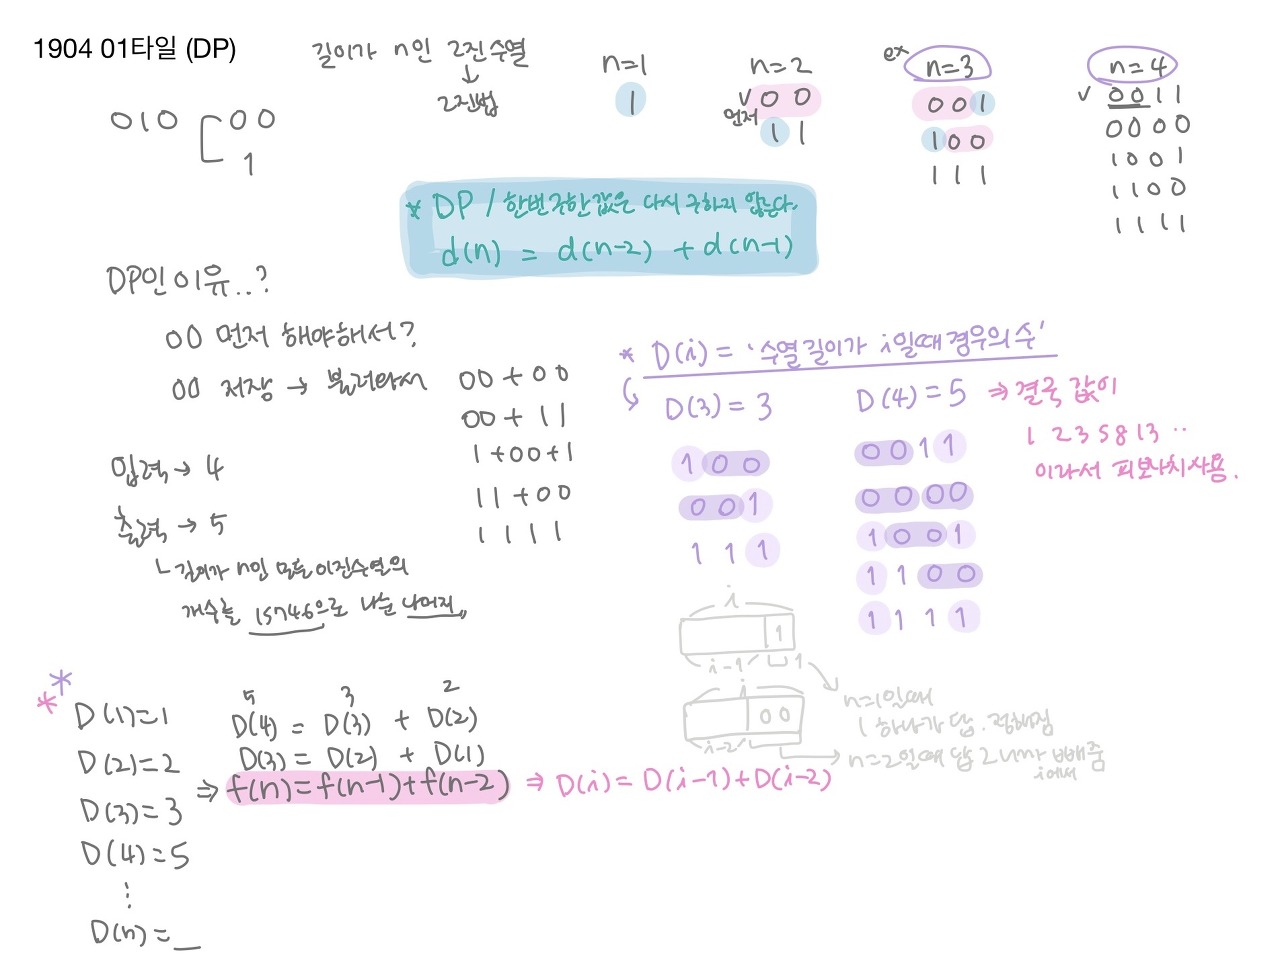 1904 01타일 (DP)
길이가 n인 2진수열
↓
2진법
010 [ 00
1
n=1
1
n=2
v 00
먼저
11
ex
n=3
001
100
111
n=4
v 0011
0000
1001
1100
1111
* DP / 한번 구한 값은 다시 구하지 않는다.
d(n) = d(n-2) + d(n-1)
DP인 이유..?
00 먼저 해야해서?
00 저장 → 불러와서
00+00
00+11
1+00+1
11+00
1111
입력 → 4
출력 → 5
ㄴ길이가 n인 모든 이진수열의
개수를 15746으로 나눈 나머지
* D(i) = '수열길이가 i일때 경우의 수'
D(3) = 3
100
001
111
D(4) = 5
0011
0000
1001
1100
1111
⇒ 결국 값이
1 2 3 5 8 13 ..
이라서 피보나치사용.
i
1
i-1 1
n=1일때
1 하나가 답. 정해짐
i
00
i-2
n=2일때 답 2니까 빼줌
i에서
**
D(1)=1
D(2)=2
D(3)=3
D(4)=5
⋮
D(n)=_
5 3 2
D(4) = D(3) + D(2)
D(3) = D(2) + D(1)
⇒ f(n)=f(n-1)+f(n-2) ⇒ D(i) = D(i-1)+D(i-2)